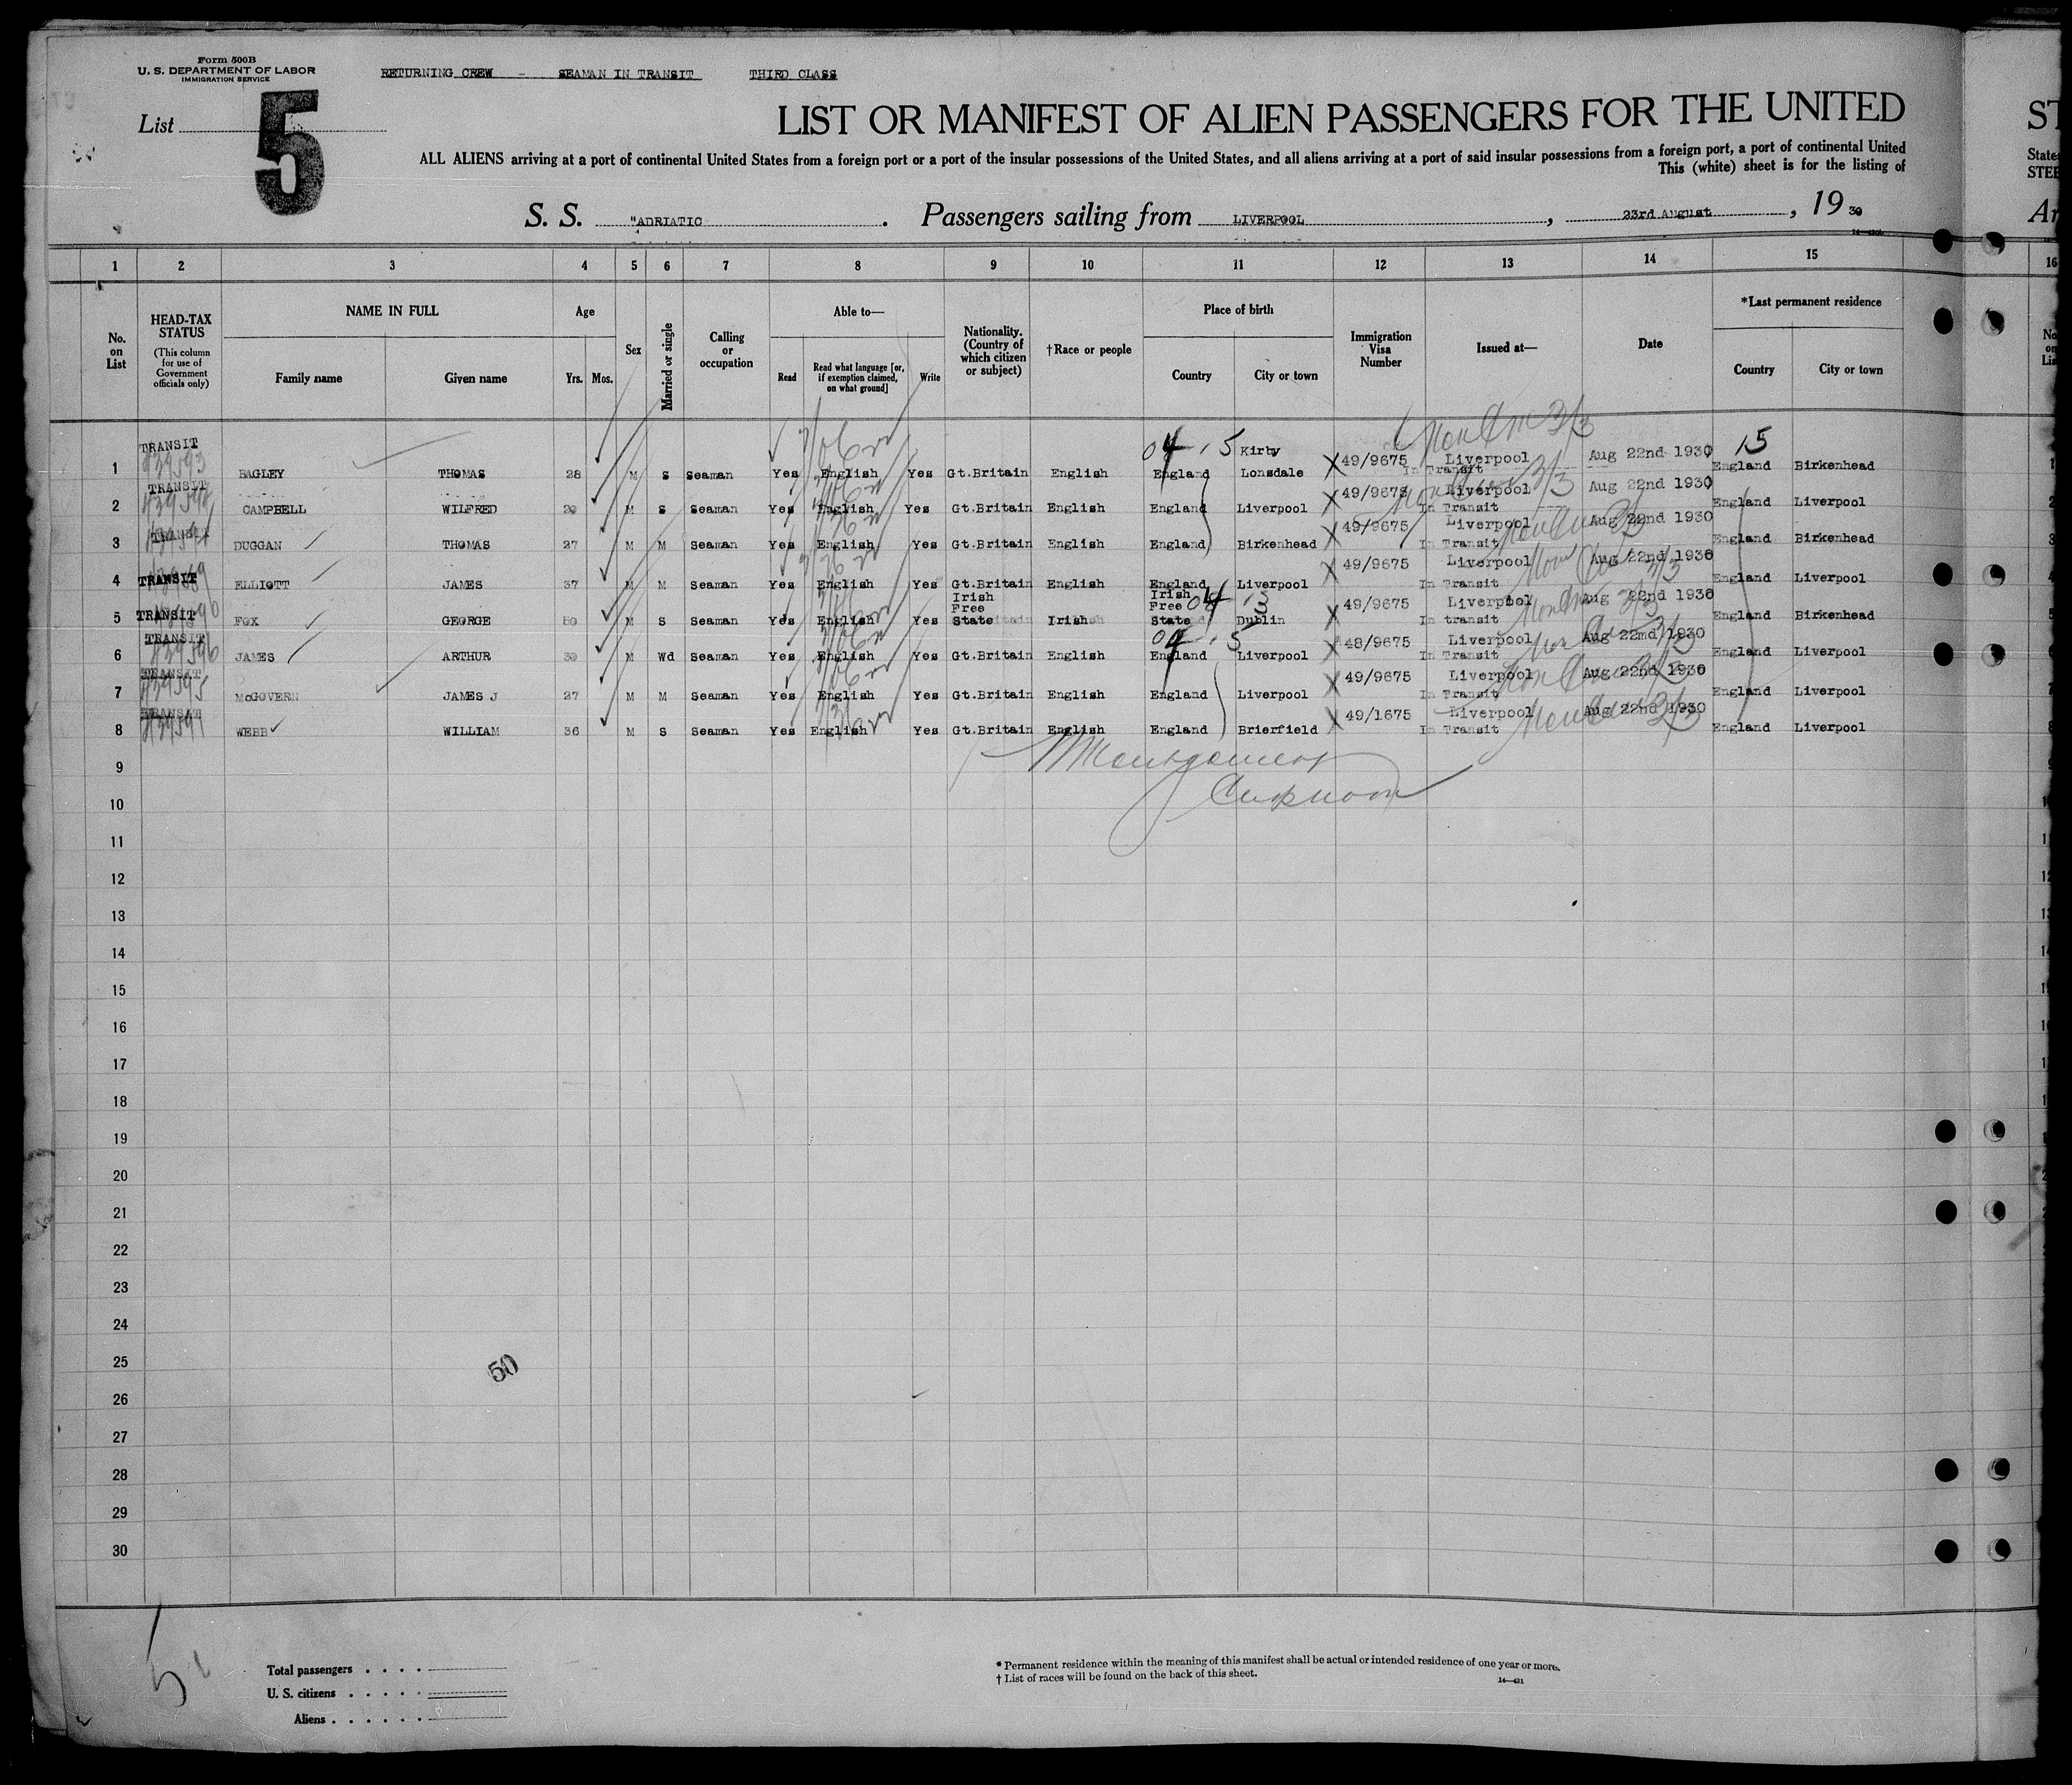 Form 500B
U. S. DEPARTMENT OF LABOR
IMMIGRATION SERVICE
RETURNING CREW - SEAMAN IN TRANSIT THIRD CLASS
List 5
LIST OR MANIFEST OF ALIEN PASSENGERS FOR THE UNITED
ALL ALIENS arriving at a port of continental United States from a foreign port or a port of the insular possessions of the United States, and all aliens arriving at a port of said insular possessions from a foreign port, a port of continental United
This (white) sheet is for the listing of
S. S. "ADRIATIC . Passengers sailing from LIVERPOOL , 23rd August , 19 30
ST
State
STEE
Ar
1 2 3 4 5 6 7 8 9 10 11 12 13 14 15 16
No. on List
HEAD-TAX STATUS
(This column for use of Government officials only)
NAME IN FULL
Family name Given name
Age
Yrs. Mos.
Sex
Married or single
Calling or occupation
Able to—
Read
Read what language [or, if exemption claimed, on what ground]
Write
Nationality. (Country of which citizen or subject)
†Race or people
Place of birth
Country City or town
Immigration Visa Number
Issued at—
Date
*Last permanent residence
Country City or town
04 5 15
1 TRANSIT BAGLEY THOMAS 28 M S Seaman Yes English Yes Gt.Britain English England Kirby Lonsdale 49/9675 Liverpool In Transit Aug 22nd 1930 England Birkenhead
2 TRANSIT CAMPBELL WILFRED 29 M S Seaman Yes English Yes Gt.Britain English England Liverpool 49/9675 Liverpool In Transit Aug 22nd 1930 England Liverpool
3 TRANSIT DUGGAN THOMAS 27 M M Seaman Yes English Yes Gt.Britain English England Birkenhead 49/9675 Liverpool In Transit Aug 22nd 1930 England Birkenhead
4 TRANSIT ELLIOTT JAMES 37 M M Seaman Yes English Yes Gt.Britain English England Liverpool 49/9675 Liverpool In Transit Aug 22nd 1930 England Liverpool
5 TRANSIT FOX GEORGE 50 M S Seaman Yes English Yes Irish Free State Irish Irish Free State 04 Dublin 49/9675 Liverpool In transit Aug 22nd 1930 England Birkenhead
04 5
6 TRANSIT JAMES ARTHUR 30 M Wd Seaman Yes English Yes Gt.Britain English England Liverpool 48/9675 Liverpool In Transit Aug 22md 1930 England Liverpool
7 TRANSIT McGOVERN JAMES J 27 M M Seaman Yes English Yes Gt.Britain English England Liverpool 49/9675 Liverpool In Transit Aug 22nd 1930 England Liverpool
8 TRANSIT WEBB WILLIAM 36 M S Seaman Yes English Yes Gt.Britain English England Brierfield 49/1675 Liverpool In Transit Aug 22nd 1930 England Liverpool
9
10
11
12
13
14
15
16
17
18
19
20
21
22
23
24
25
50
26
27
28
29
30
Total passengers
U. S. citizens
Aliens
* Permanent residence within the meaning of this manifest shall be actual or intended residence of one year or more.
† List of races will be found on the back of this sheet.
14—431